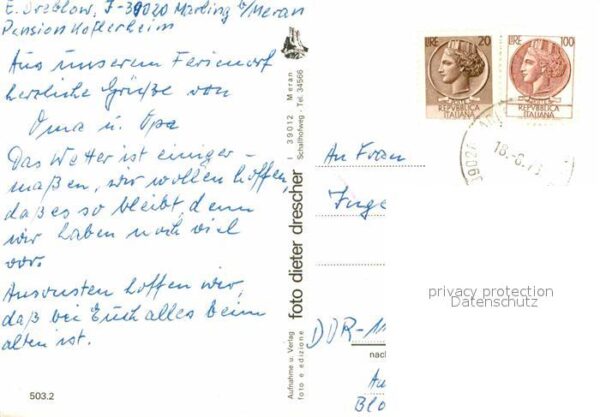 E. Dreblow, I-39020 Marling b/Meran
Pension Hoflerheim
Aus unserem Feriendorf
herzliche Grüße von
Oma u. Opa
Das Wetter ist einiger-
maßen, wir wollen hoffen,
daß es so bleibt, denn
wir haben noch viel
vor.
Ansonsten hoffen wir,
daß bei Euch alles beim
alten ist.
503.2
Aufnahme u. Verlag
foto e edizione
foto dieter drescher
I 39012 Meran
Schallhofweg · Tel. 34566
LIRE 20
REPVBBLICA
ITALIANA
LIRE 100
REPVBBLICA
ITALIANA
An Frau
Inge
privacy protection
Datenschutz
DDR-11
nach
Au
Blo